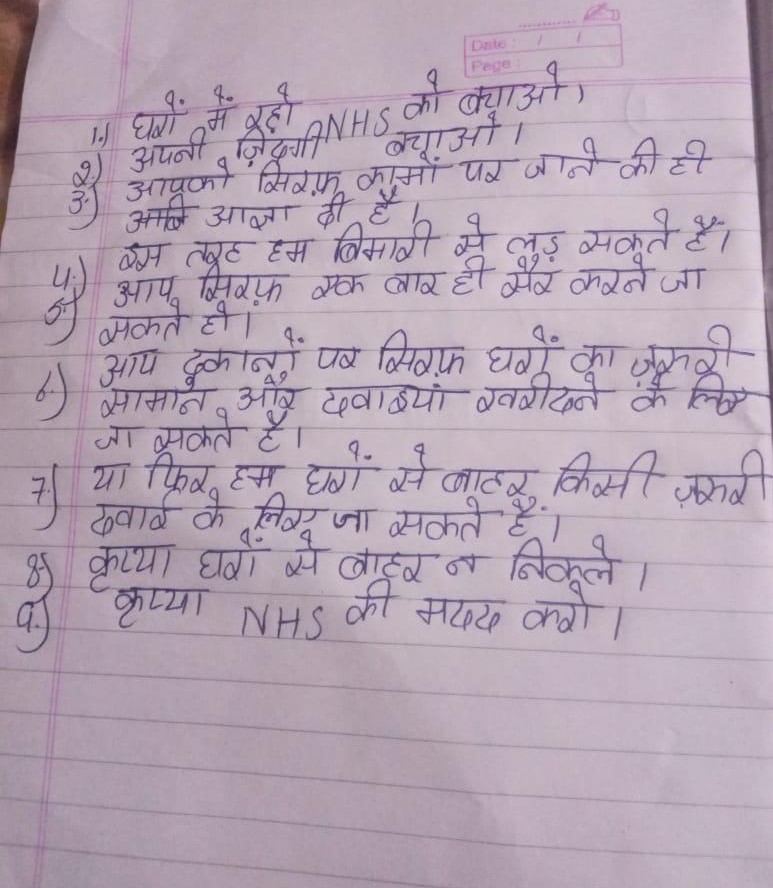 Date: / /
Page:
1.) घरों में रहो NHS को बचाओ।
2) अपनी ज़िंदगी बचाओ।
3.) आपको सिरफ़ कामों पर जाने की ही
आज्ञा दी है।
4.) इस तरह हम बिमारी से लड़ सकते हैं।
5) आप सिरफ़ एक बार ही सैर करने जा
सकते हो।
6.) आप दुकानों पर सिरफ़ घरों का ज़रुरी
सामान और दवाइयां खरीदने के लिए
जा सकते है।
7.) या फिर हम घरों से बाहर किसी ज़रुरी
दवाई के लिए जा सकते हैं।
8) कृप्या घरों से बाहर न निकले।
9.) कृप्या NHS की मदद करो।